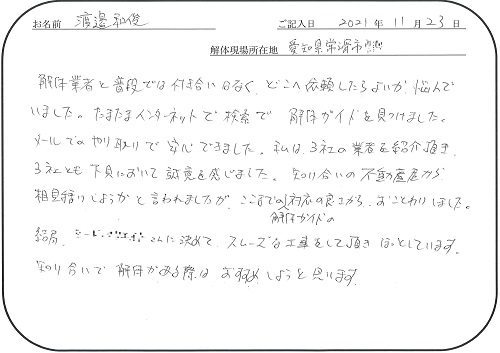 お名前 渡邉和俊 ご記入日 2021年11月23日
解体現場所在地 愛知県常滑市
解体業者と普段では付き合いはなく、どこへ依頼したらよいか悩んで
いました。たまたまインターネットで検索で 解体ガイドを見つけました。
メールでのやり取りで安心できました。私は、3社の業者を紹介頂き、
3社とも下見において誠意を感じました。知り合いの不動産屋から
相見積りしようかと言われましたが、ここまでの対応の良さから、おことわりしました。
解体ガイドの
結局、さんに決めて、スムーズな工事をして頂きほっとしています。
知り合いで解体がある際はおすすめしようと思います。